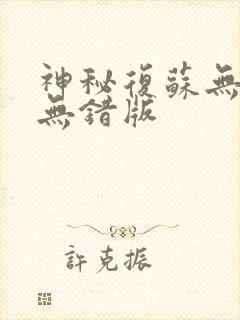 神秘復蘇無
無錯版
許克振